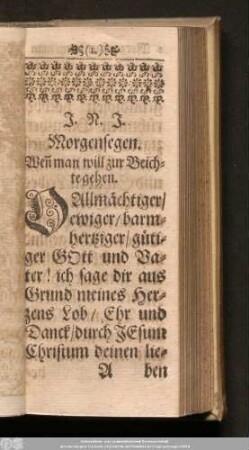 (1.)
J. N. J.
Morgensegen.
Weñ man will zur Beich-
te gehen.
O Allmächtiger/
ewiger/ barm-
hertziger/ güti-
ger GOtt und Va-
ter! ich sage dir aus
Grund meines Her-
zens Lob/ Ehr und
Danck/ durch JEsum
Christum deinen lie-
A ben